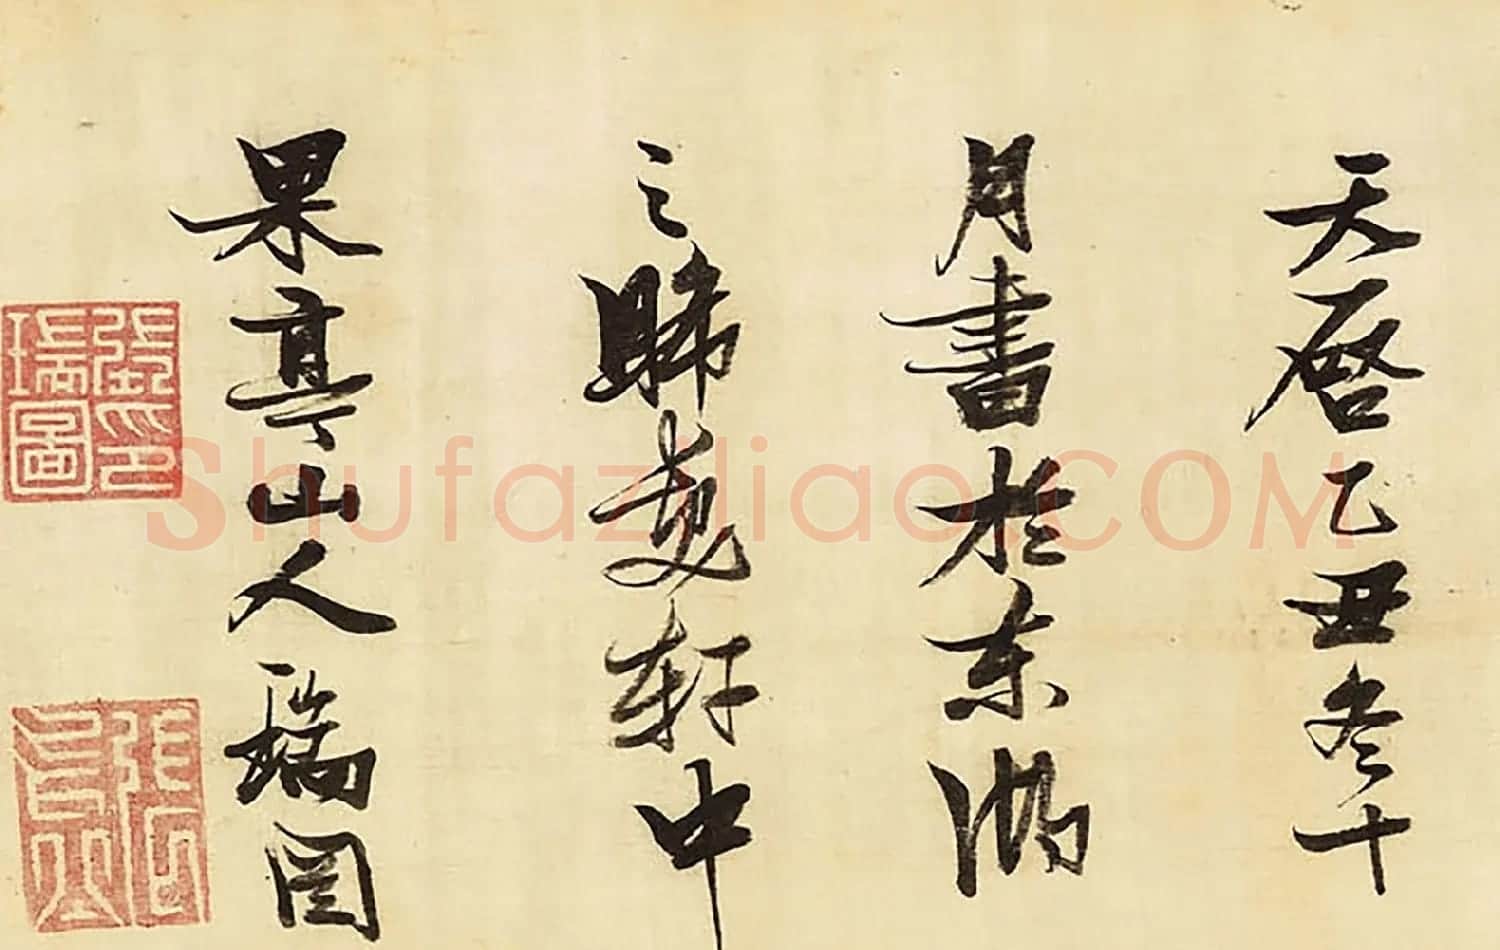 天啓乙丑冬十
月書於東湖
之晞髮軒中
果亭山人瑞图
張瑞圖印
Shufaziliao.COM